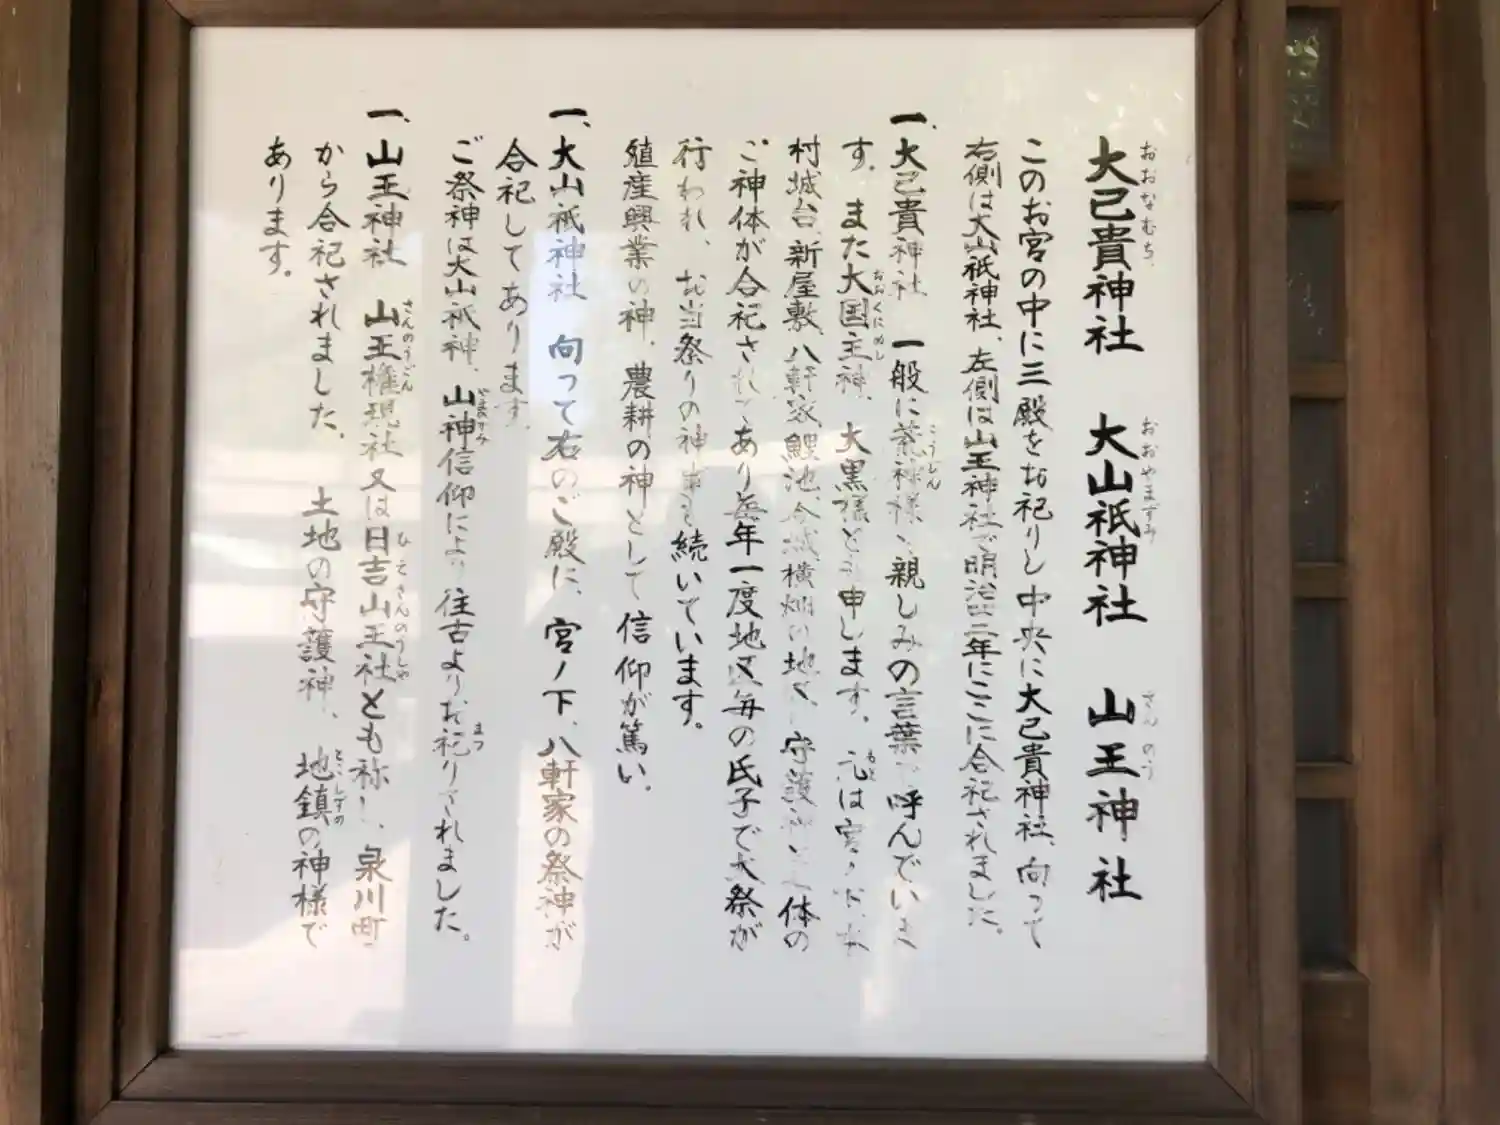 大己貴神社　大山祇神社　山王神社
おおなむち　おおやまずみ　さんのう
このお宮の中に三殿をお祀りし中央に大己貴神社、向って
右側は大山祇神社、左側は山王神社で明治四二年にここに合祀されました。
一、大己貴神社　一般に荒神様と親しみの言葉で呼んでいま
こうじん
す。また大国主神、大黒様とも申します。元は宮ノ下、
おおくにぬし　もと
村城台、新屋敷、八軒家、鯉池、横畑の地区、守護神 体の
ご神体が合祀されてあり毎年一度地区毎の氏子で大祭が
行われ、お当祭りの神事も続いています。
殖産興業の神、農耕の神として信仰が篤い。
一、大山祇神社　向って右のご殿に、宮ノ下、八軒家の祭神が
合祀してあります。
ご祭神は大山祇神、山神信仰により往古よりお祀りされました。
やまずみ　まつ
一、山王神社　山王権現社又は日吉山王社とも称し、泉川町
さんのうごん　ひえさんのうしゃ
から合祀されました。土地の守護神、地鎮の神様で
とこしずの
あります。